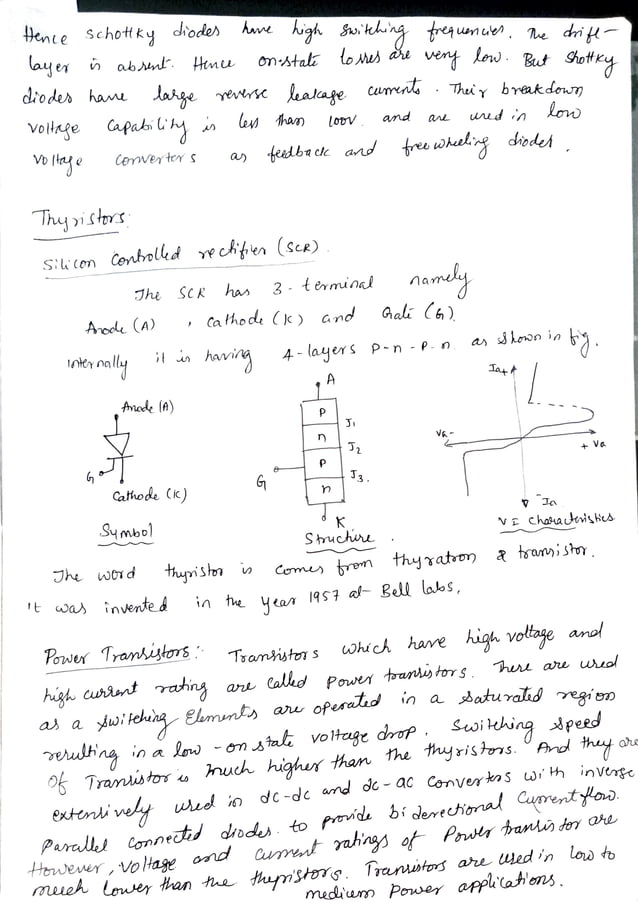 Hence schottky diodes have high switching frequencies. The drift-
layer is absent. Hence on-state losses are very low. But Shottky
diodes have large reverse leakage currents. Their breakdown
voltage capability is less than 100V. and are used in low
voltage converters as feedback and freewheeling diodes.
Thyristors:
Silicon controlled rectifier (SCR).
The SCR has 3-terminal namely
Anode (A) , Cathode (K) and Gate (G).
internally it is having 4-layers p-n-p-n as shown in fig.
Anode (A)
G
Cathode (K)
Symbol
A
P
n
P
n
J1
J2
J3.
G
K
Structure.
Ia+
Va-
+ Va
-Ia
VI Characteristics
The word thyristor is comes from thyratron & transistor.
it was invented in the year 1957 at Bell labs,
Power Transistors: Transistors which have high voltage and
high current rating are called power transistors. These are used
as a switching Elements are operated in a saturated region
resulting in a low-on state voltage drop. Switching speed
of Transistor is much higher than the thyristors. And they are
extensively used in dc-dc and dc-ac converters with inverse
parallel connected diodes. to provide bi derectional current flow.
However, voltage and current ratings of Power transistor are
much lower than the thyristors. Transistors are used in low to
medium power applications.